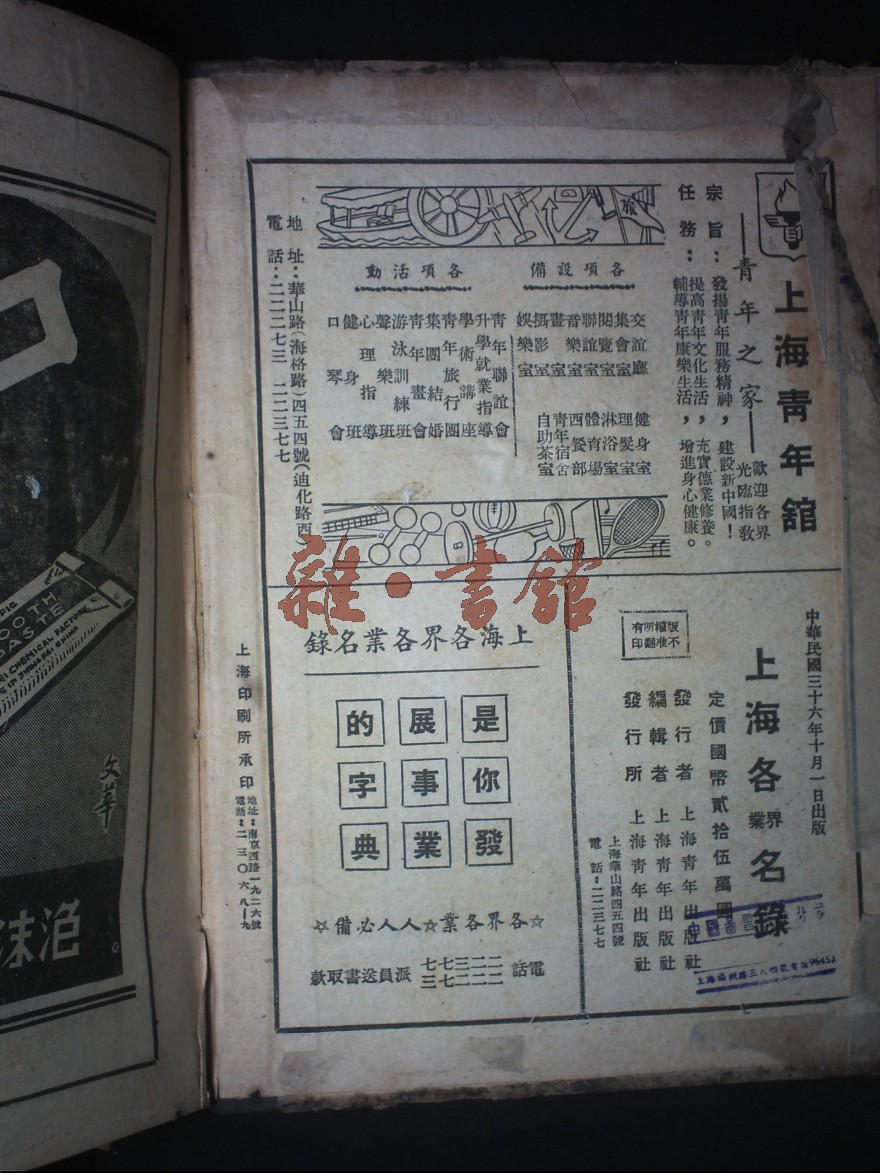 上海青年舘
——青年之家——
歡迎各界
光臨指教
宗旨：發揚青年服務精神，建設新中國！
任務：提高青年文化生活，充實德業修養。
輔導青年康樂生活，增進身心健康。
旅
各項設備
交誼廳
集會室
閱覽室
聯誼室
音樂室
畫室
攝影室
娛樂室
健身室
理髮室
淋浴室
體育場
西餐部
青年宿舍
自助茶室
各項活動
青年聯誼會
升學就業指導
學術講座
青年旅行團
集團結婚
青年畫會
游泳訓練班
聲樂班
心理指導
健身班
口琴會
地址：華山路(海格路)四五四號(迪化路西)
電話：二二二七三 二二三七七
雜·書館
中華民國三十六年十月一日出版
上海各界業名錄
定價國幣貳拾伍萬圓
發行者 上海青年出版社
編輯者 上海青年出版社
發行所 上海青年出版社
上海華山路四五四號
電話：二二三七七
版權所有
不准翻印
上海各界各業名錄
是你發
展事業
的字典
☆各界各業☆人人必備☆
電話 二二三七七
二二二七三
派員送書取款
上海印刷所承印
地址：南京西路一九二六號
電話：二三〇六八—九
文華
TOOTH
PASTE
CHEMICAL FACTORY
沫